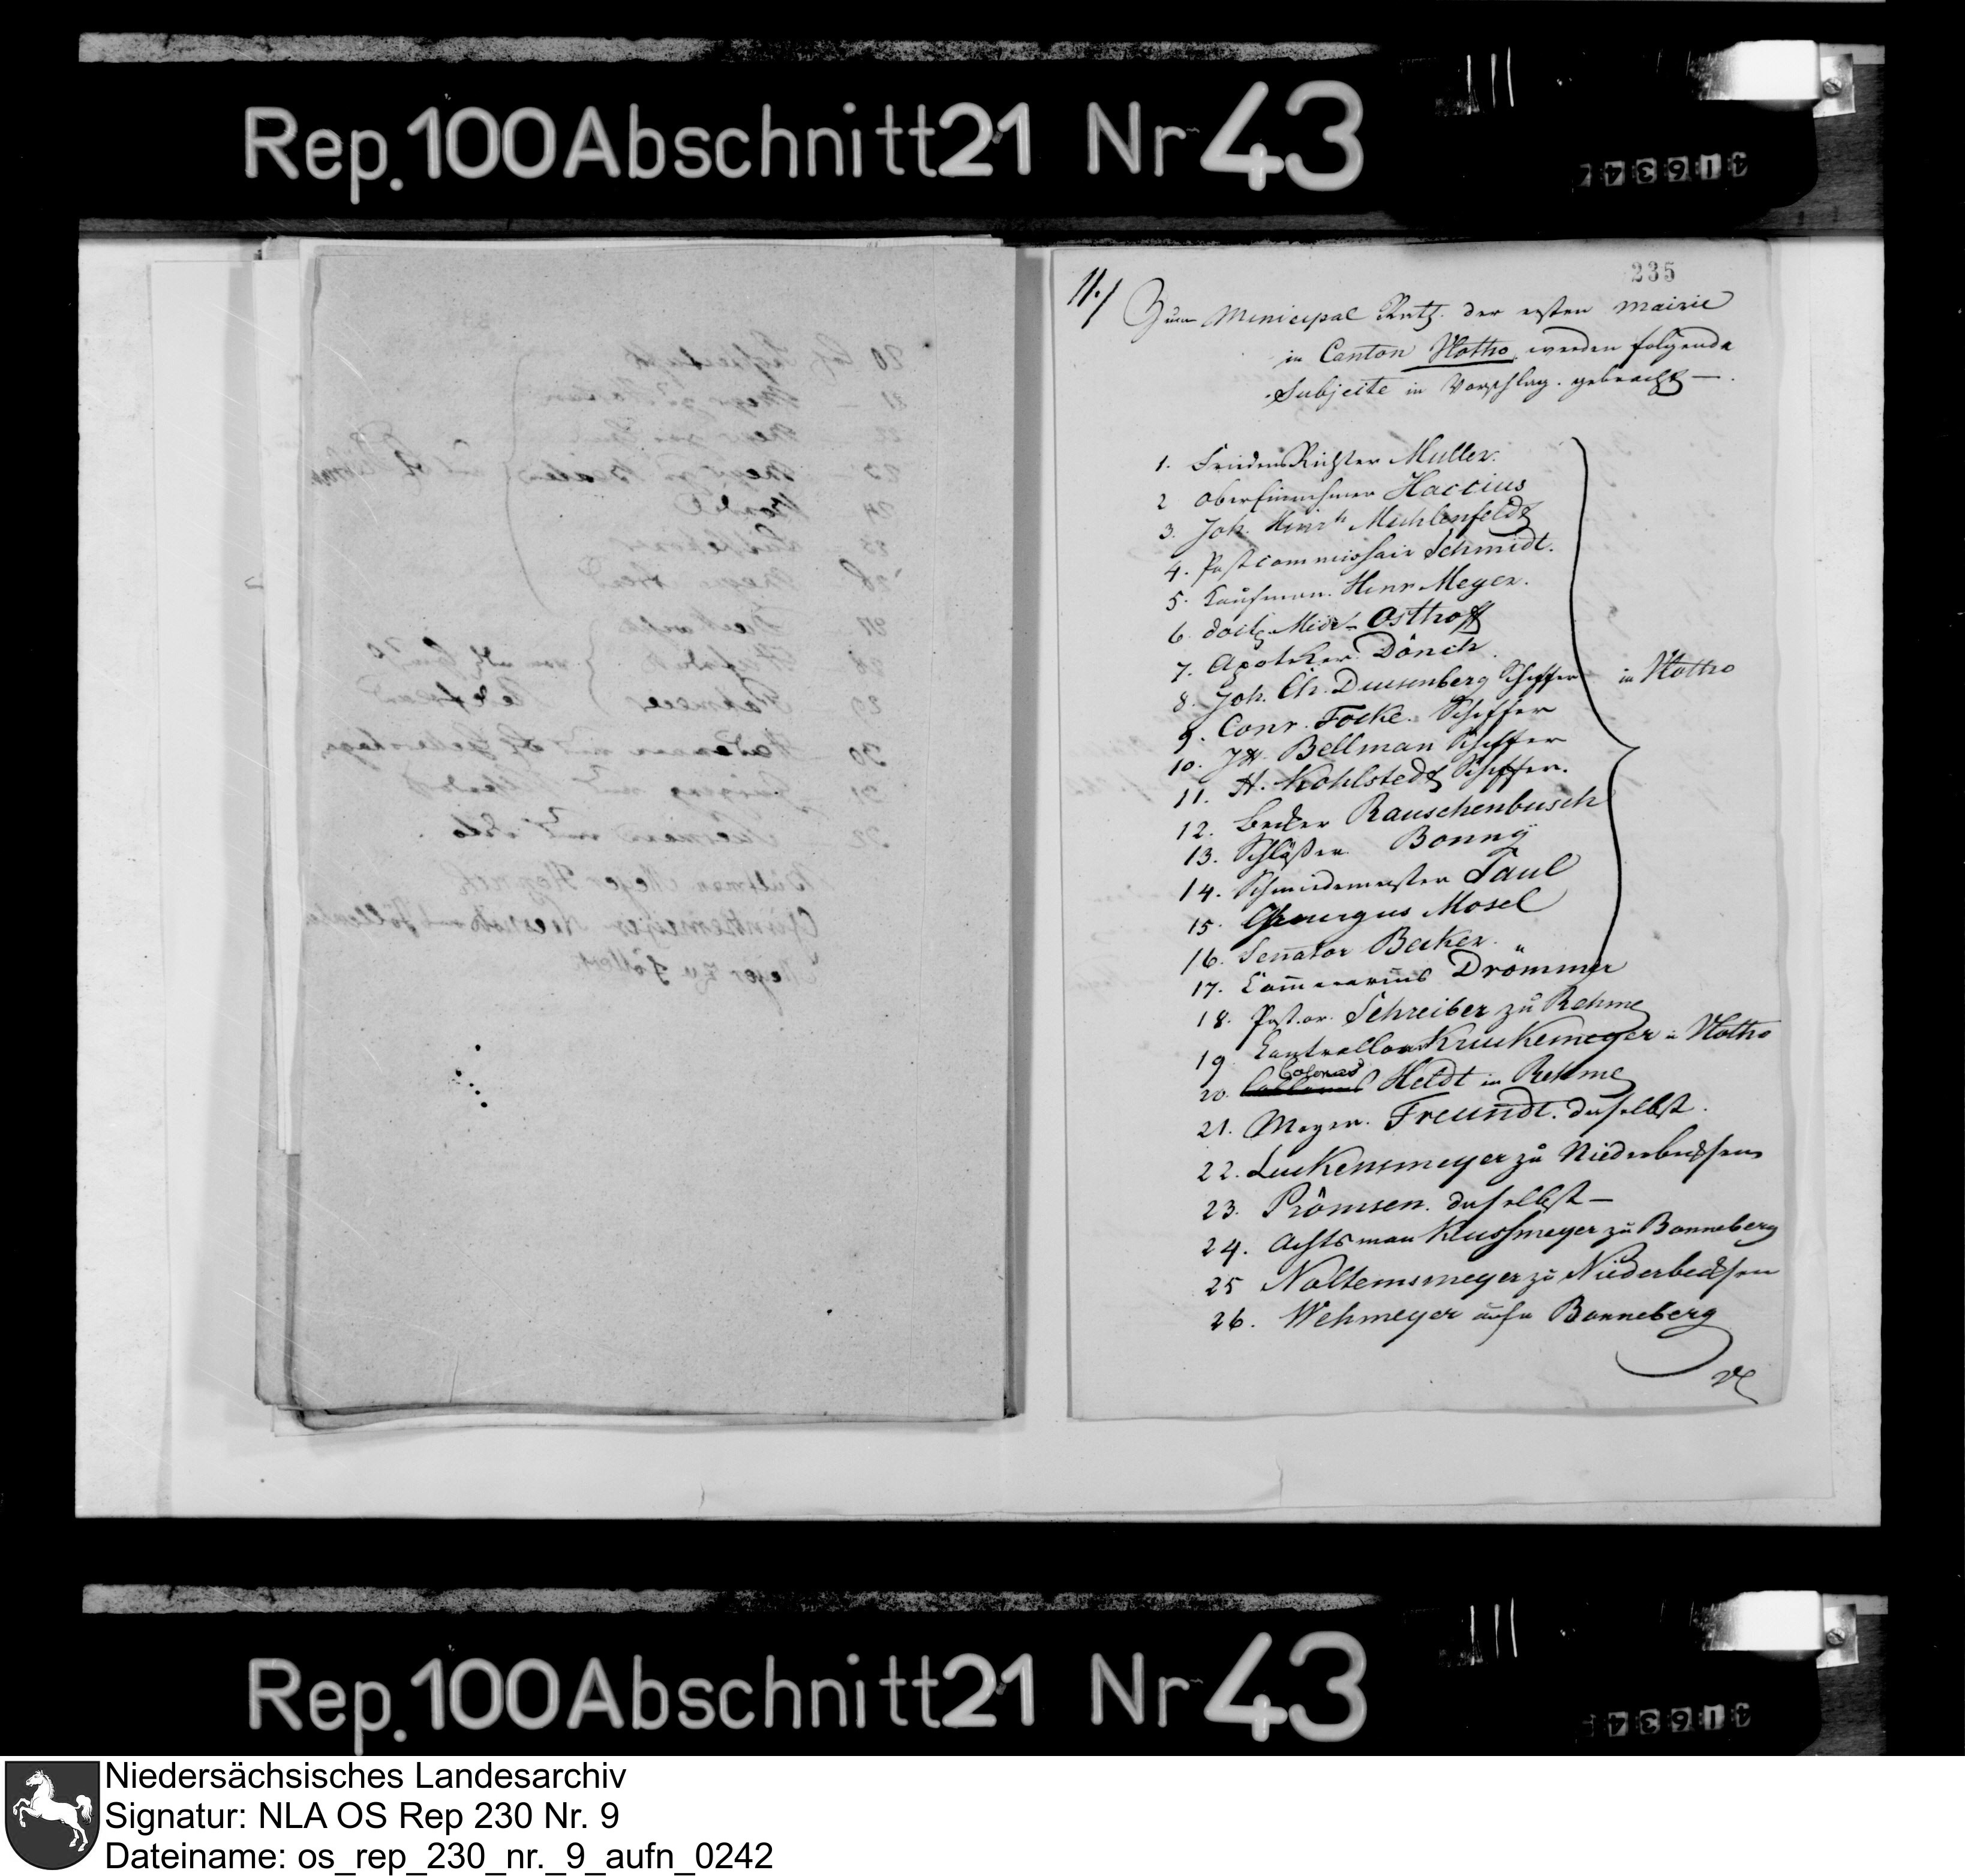 Rep. 100 Abschnitt 21 Nr 43
41634
235
11.)
Zum Municipal Rath der ersten Mairie
in Canton Vlotho werden folgende
Subjecte in Vorschlag gebracht —.
1. FriedensRichter Muller.
2 Obereinnehmer Haccius
3. Joh. Hinrh Muhlenfeldt
4. Postcommissair Schmidt.
5. Kaufman. Henr Meyer.
6. Med. Osthoff
7. Apoteker Dönch.
8. Joh. Ch. Deesenberg Schiffer
9. Conr. Focke. Schiffer
10. Bellman Schiffer
11. H. Kohlstedt Schiffer.
12. Becker Rauschenbusch
13. Schlößer Bonny
14. Schmiedemeister Paul
15. Chirurgus Mosel
16. Senator Becker.
17. Cämmerarius Drömmer
in Vlotho
18. Pastor Schreiber zu Rehme
19. Controlleur Krukemeyer in Vlotho
20. Colonus Heldt in Rehme
21. Meyer. Freundt. daselbst.
22. Lukensmeyer zu Niederbecksen
23. Prömsen. daselbst —
24. Achtsman Klussmeyer zu Bonneberg
25 Noltensmeyer zu Niederbecksen
26. Wehmeyer aufn Bonneberg
Rep. 100 Abschnitt 21 Nr 43
41634
Niedersächsisches Landesarchiv
Signatur: NLA OS Rep 230 Nr. 9
Dateiname: os_rep_230_nr._9_aufn_0242